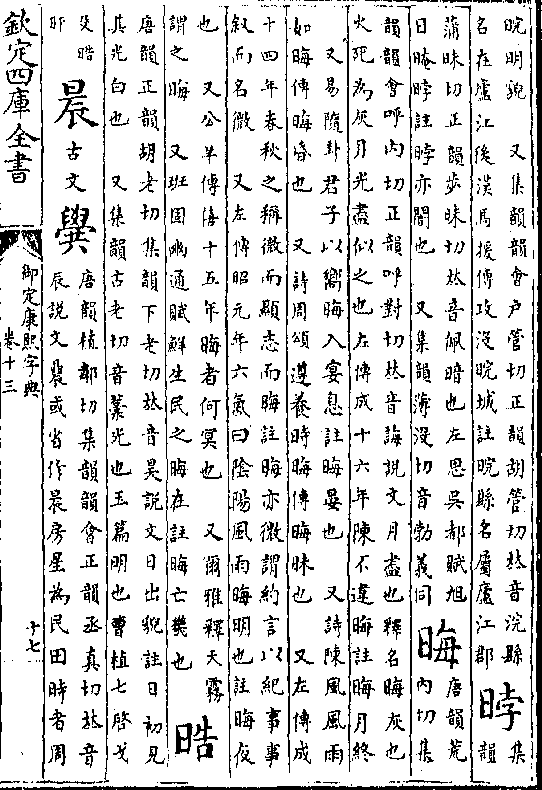 晥明貌　又集韻韻會戸管切正韻胡管切𠀤音浣縣
名在廬江後漢馬援傳攻没晥城註晥縣名屬廬江郡
㫲集韻
蒲昧切正韻步昧切𠀤音佩暗也左思吳都賦旭
日晻㫲註㫲亦闇也　又集韻薄没切音勃義同
晦唐韻荒
内切集
韻韻會呼内切正韻呼對切𠀤音誨說文月盡也釋名晦灰也
火死為灰月光盡似之也左傳成十六年陳不違晦註晦月終
又易隨卦君子以嚮晦入宴息註晦晏也　又詩陳風風雨
如晦傳晦昏也　又詩周頌遵養時晦傳晦昧也　又左傳成
十四年春秋之稱微而顯志而晦註晦亦微謂約言以紀事事
叙而名微　又左傳昭元年六氣曰陰陽風雨晦明也註晦夜
也　又公羊傳僖十五年晦者何冥也　又爾雅釋天霧
謂之晦　又班固幽通賦鮮生民之晦在註晦亡幾也
晧
唐韻正韻胡老切集韻下老切𠀤音昊說文日出貌註日初見
其光白也　又集韻古老切音䓘光也玉篇明也曹植七啓戈
殳晧
旰
晨古文𦦥唐韻植鄰切集韻韻會正韻丞真切𠀤音
辰說文曟或省作晨房星為民田時者周
欽定四庫全書
御定康熙字典
卷十三
十七